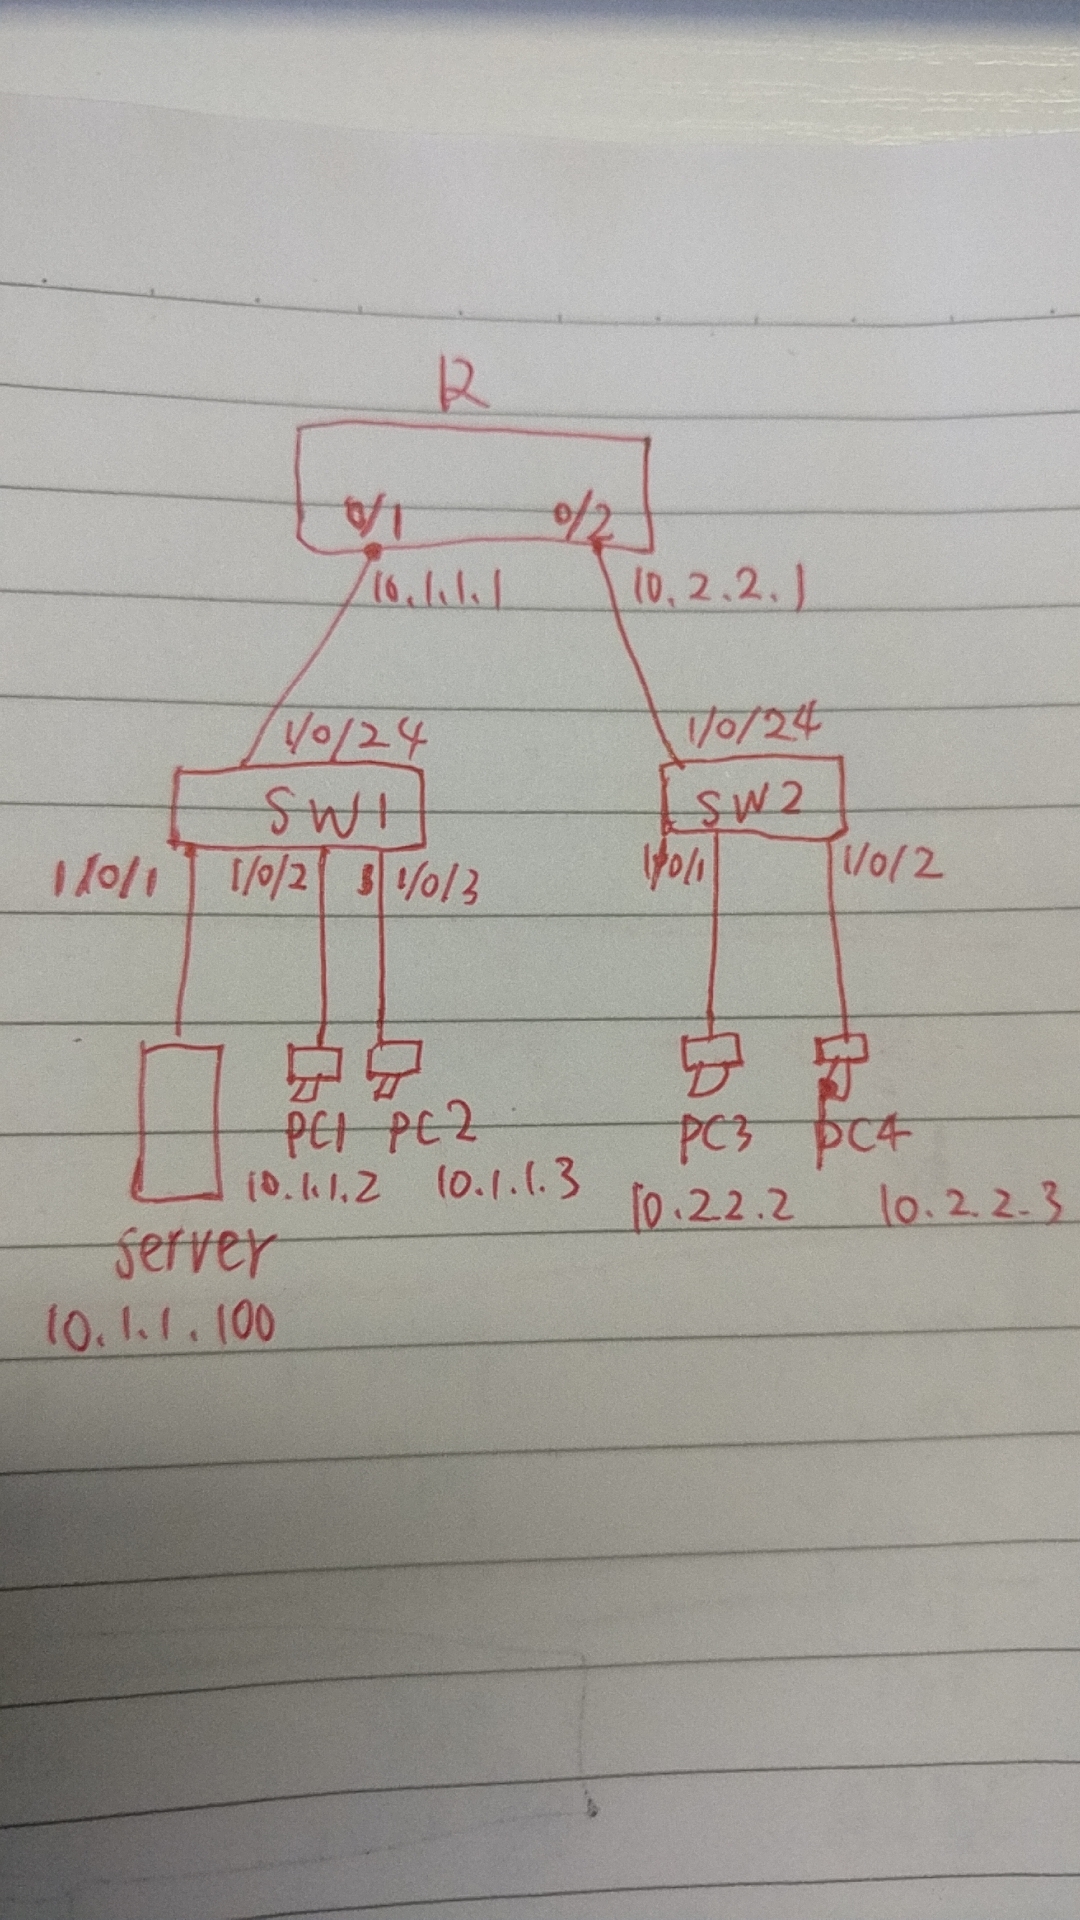 R
0/1 0/2
10.1.1.1 10.2.2.1
1/0/24 1/0/24
SW1 SW2
1/0/1 1/0/2 1/0/3 1/0/1 1/0/2
PC1 PC2 PC3 PC4
10.1.1.2 10.1.1.3 10.22.2 10.2.2.3
server
10.1.1.100